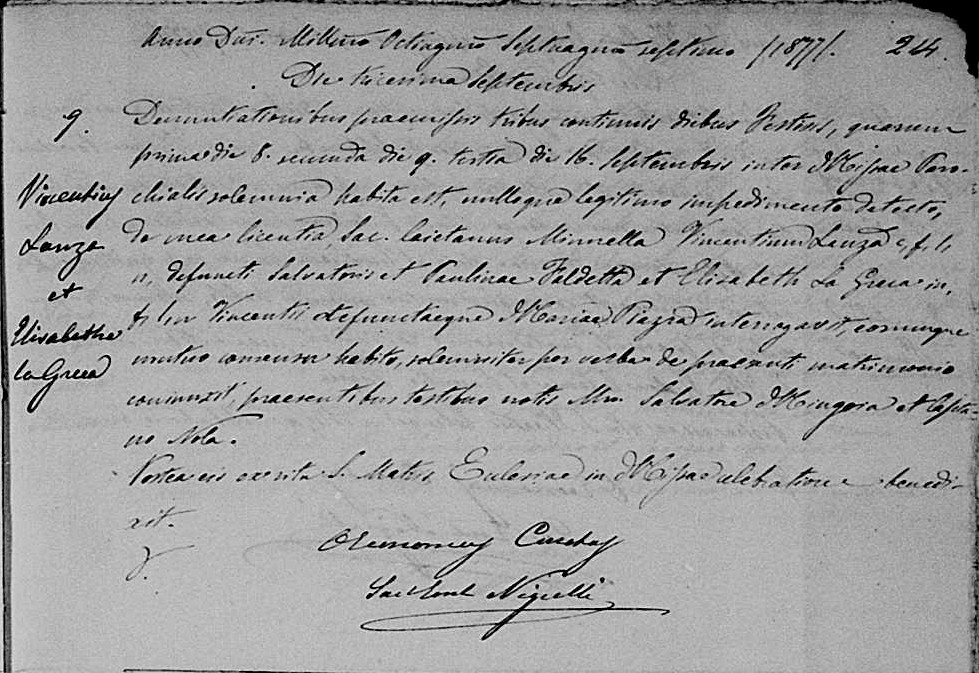 Anno Dni. Millmo Octingmo Septuagmo septimo /1877/. 24.
Die vicesima Septembris
9. Denuntiationibus praemissis tribus continuis diebus Festivis, quarum
prima die 8. secunda die 9. tertia die 16. Septembris inter Missae Paro-
chialis solemnia habita est, nulloque legitimo impedimento detecto,
de mea licentia, Sac. Caietanus Minnella Vincentium Lanza c. f. l.
n. defuncti Salvatoris et Paulinae Faldetta et Elisabeth La Greca in.
f. l. n. Vincentii defunctaeque Mariae Piazza interrogavit, eorumque
mutuo consensu habito, solemniter per verba de praesenti matrimonio
coniunxit, praesentibus testibus notis Mro. Salvatore Mingoia et Cajeta-
no Nola.
Postea eis ex ritu S. Matris Ecclesiae in Missae celebratione benedi-
xit.
Vincentius
Lanza
et
Elisabetha
la Greca
Oeconomus Curatus
Sac.